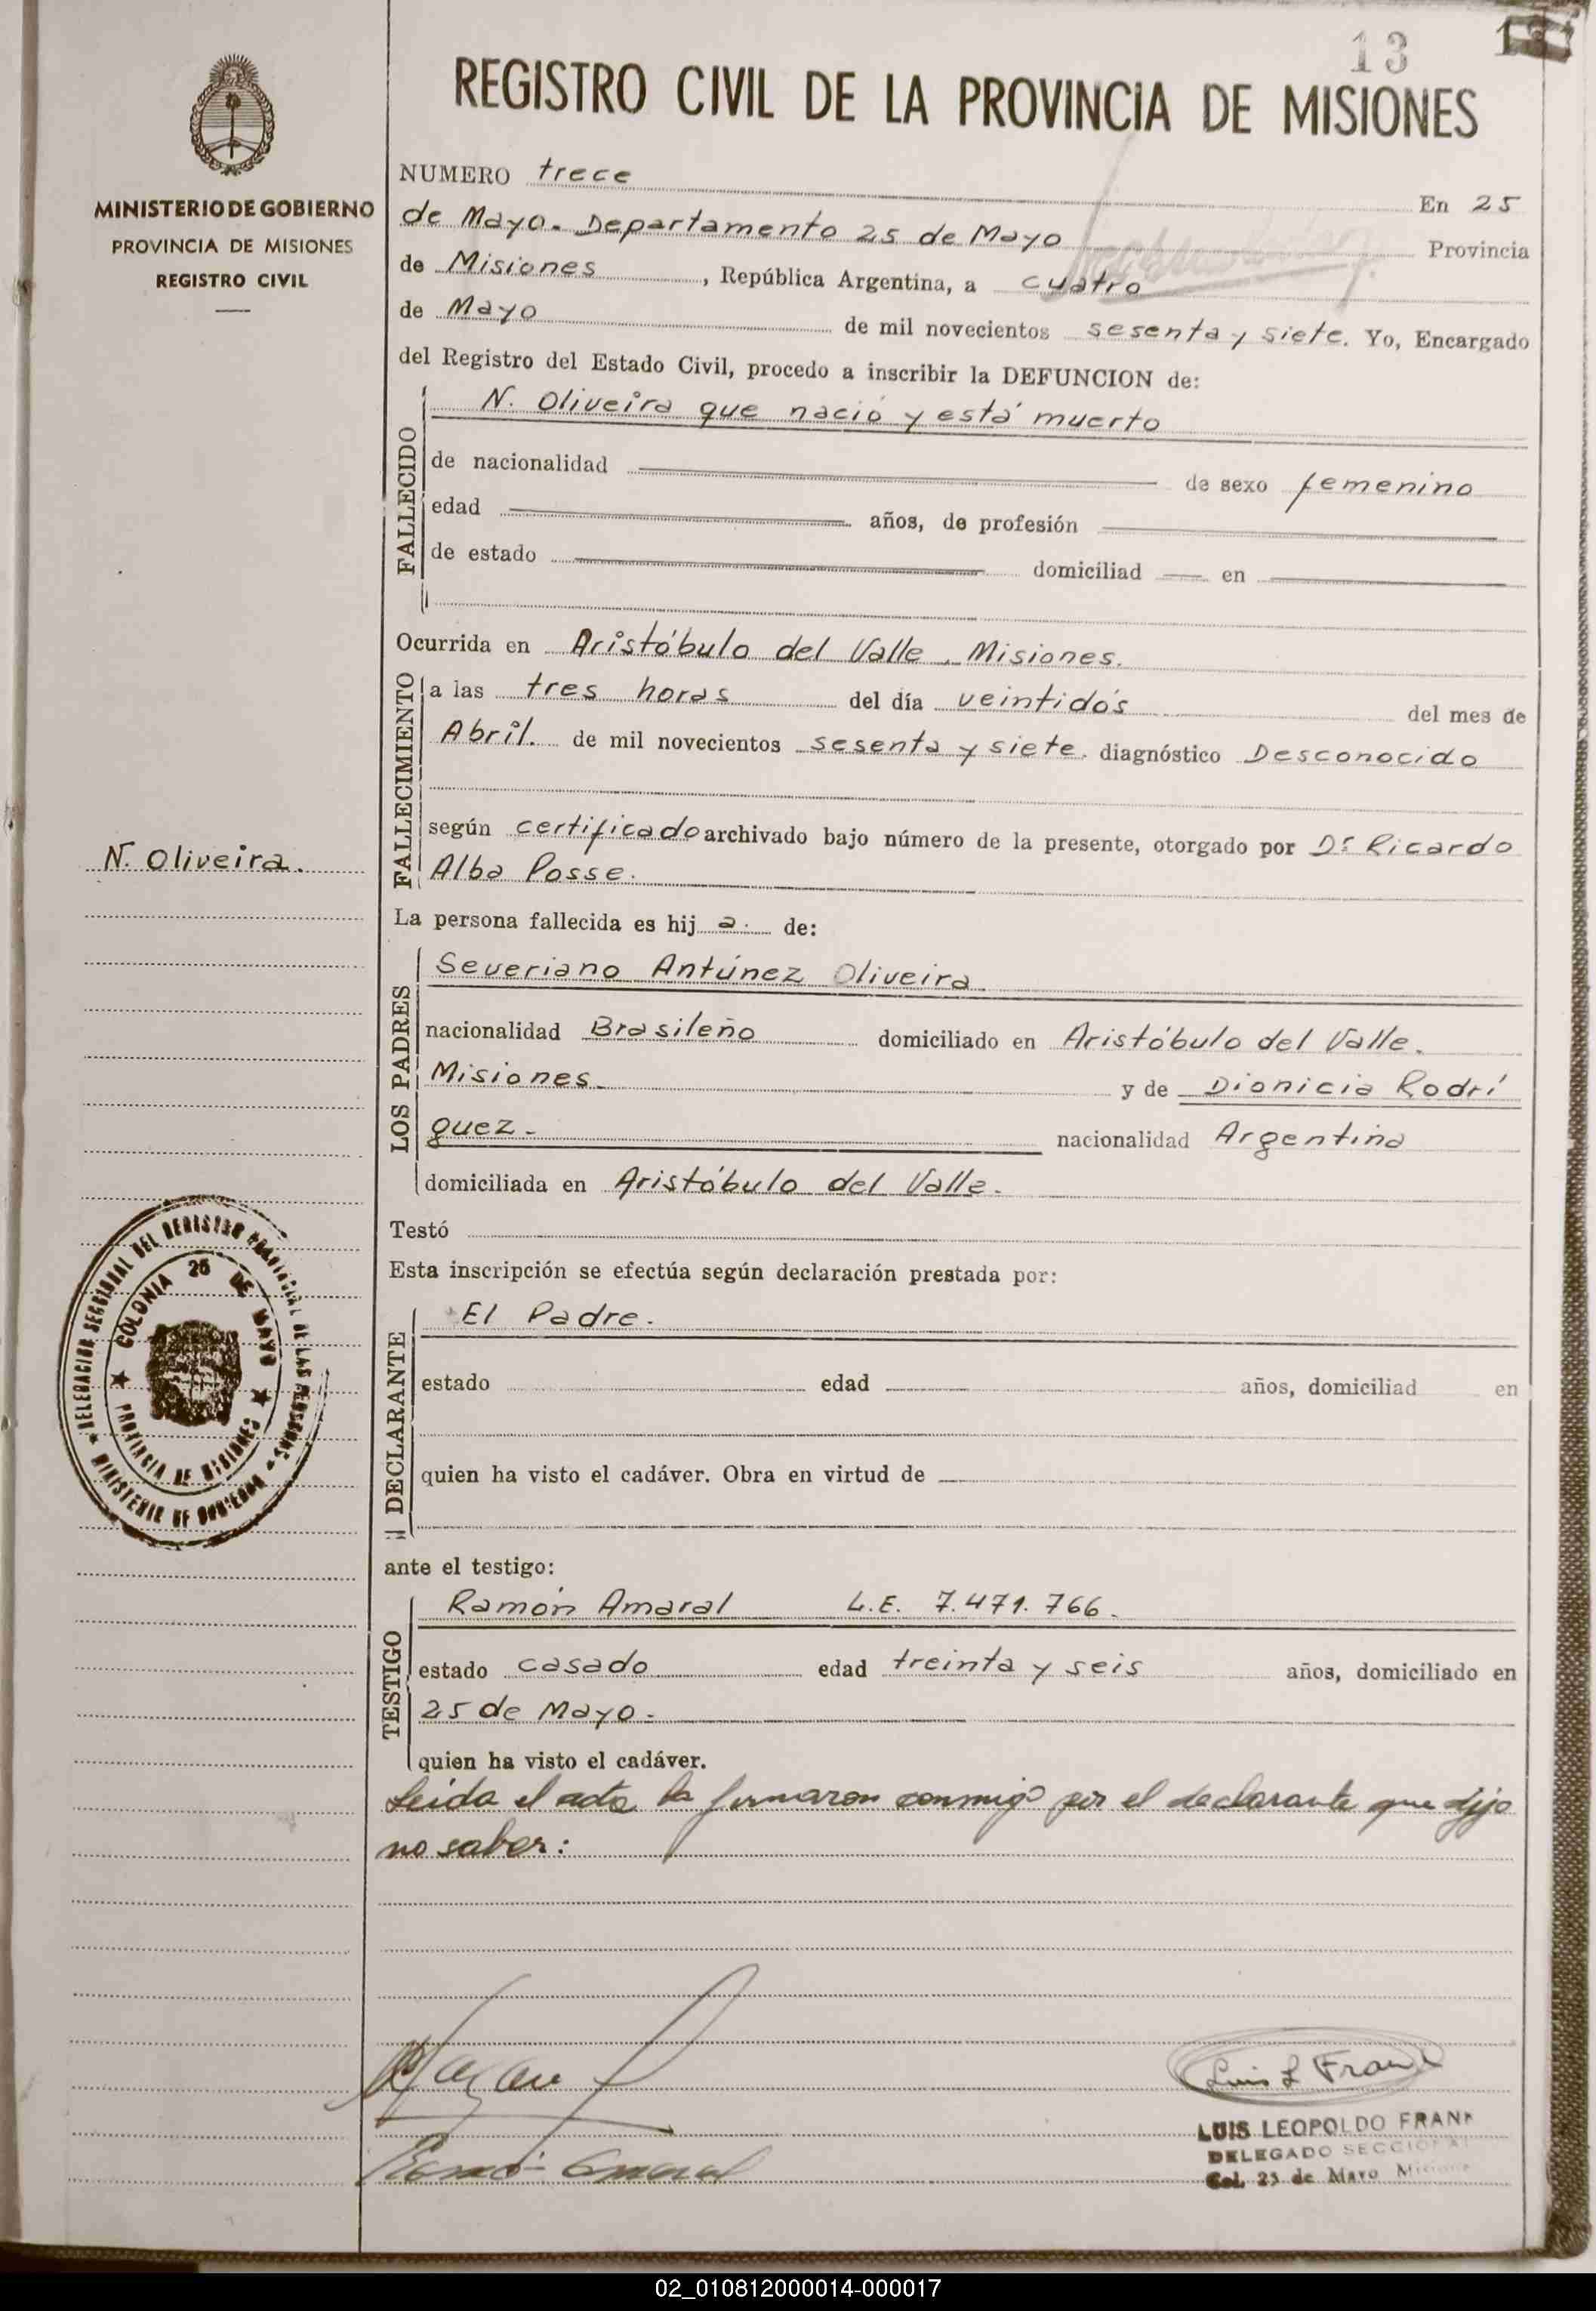 13
REGISTRO CIVIL DE LA PROVINCIA DE MISIONES
MINISTERIO DE GOBIERNO
PROVINCIA DE MISIONES
REGISTRO CIVIL
NUMERO trece En 25
de Mayo. Departamento 25 de Mayo Provincia
de Misiones, República Argentina, a cuatro
de Mayo de mil novecientos sesenta y siete. Yo, Encargado
del Registro del Estado Civil, procedo a inscribir la DEFUNCION de:
FALLECIDO
N. Oliveira que nació y está muerto
de nacionalidad de sexo femenino
edad años, de profesión
de estado domiciliad en
Ocurrida en Aristóbulo del Valle, Misiones.
FALLECIMIENTO
a las tres horas del día veintidós del mes de
Abril. de mil novecientos sesenta y siete. diagnóstico Desconocido
según certificado archivado bajo número de la presente, otorgado por Dr Ricardo
Alba Posse.
N. Oliveira.
La persona fallecida es hij a. de:
LOS PADRES
Severiano Antúnez Oliveira
nacionalidad Brasileño domiciliado en Aristóbulo del Valle.
Misiones. y de Dionicia Rodrí
guez. nacionalidad Argentina
domiciliada en Aristóbulo del Valle.
Testó
Esta inscripción se efectúa según declaración prestada por:
DECLARANTE
El Padre.
estado edad años, domiciliad en
quien ha visto el cadáver. Obra en virtud de
DELEGACION SECCIONAL DEL REGISTRO PROVINCIAL DE LAS PERSONAS
MINISTERIO DE GOBIERNO
COLONIA 25 DE MAYO
PROVINCIA DE MISIONES
ante el testigo:
TESTIGO
Ramón Amaral L.E. 7.471.766.
estado casado edad treinta y seis años, domiciliado en
25 de Mayo.
quien ha visto el cadáver.
Leída el acta la firmaron conmigo por el declarante que dijo
no saber:
Luis L Frank
LUIS LEOPOLDO FRANK
DELEGADO SECCIONAL
Col. 25 de Mayo Misiones
Ramón Amaral
02_010812000014-000017